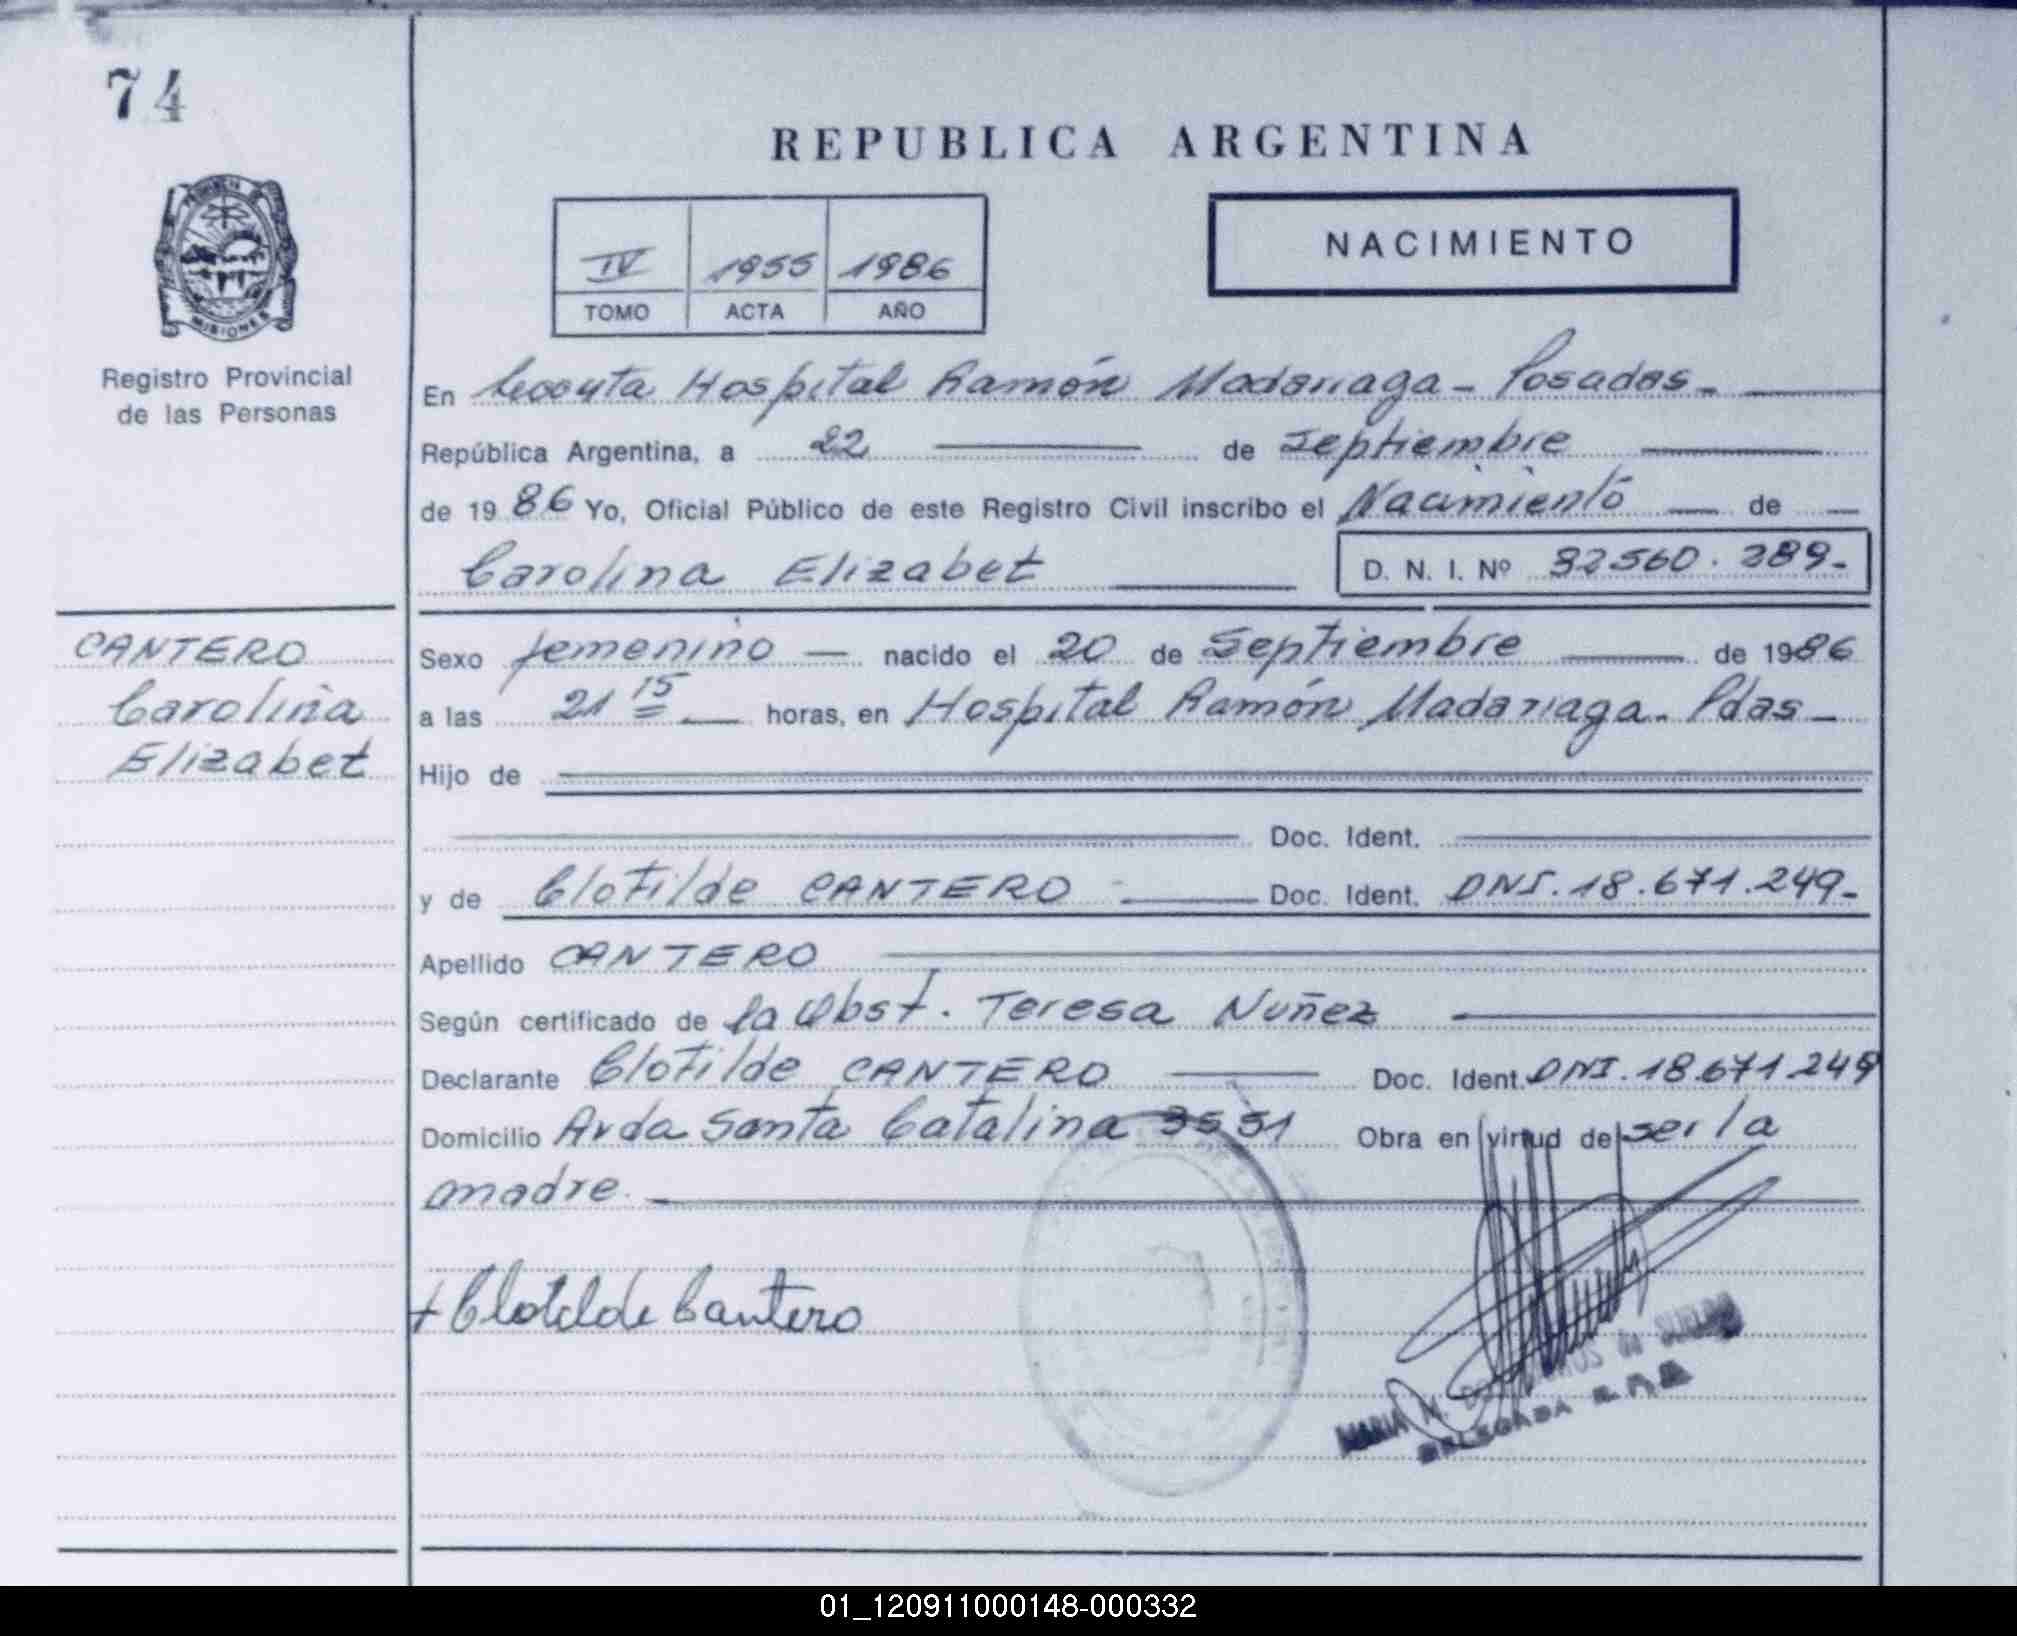 74
REPUBLICA ARGENTINA
IV 1955 1986
TOMO ACTA AÑO
NACIMIENTO
MISIONES
Registro Provincial
de las Personas
En Hospital Ramón Madariaga - Posadas -
República Argentina, a 22 de Septiembre
de 1986 Yo, Oficial Público de este Registro Civil inscribo el Nacimiento de
Carolina Elizabet D. N. I. Nº 32560.289-
CANTERO
Carolina
Elizabet
Sexo femenino nacido el 20 de Septiembre de 1986
a las 21 15 horas, en Hospital Ramón Madariaga - Pdas -
Hijo de
Doc. Ident.
y de Clotilde CANTERO Doc. Ident. DNI. 18.671.249-
Apellido CANTERO
Según certificado de la Obst. Teresa Nuñez
Declarante Clotilde CANTERO Doc. Ident. DNI. 18.671.249
Domicilio Avda Santa Catalina 3551 Obra en virtud de ser la
madre.
+ Clotilde Cantero
MARIA M.
DELEGADA
01_120911000148-000332